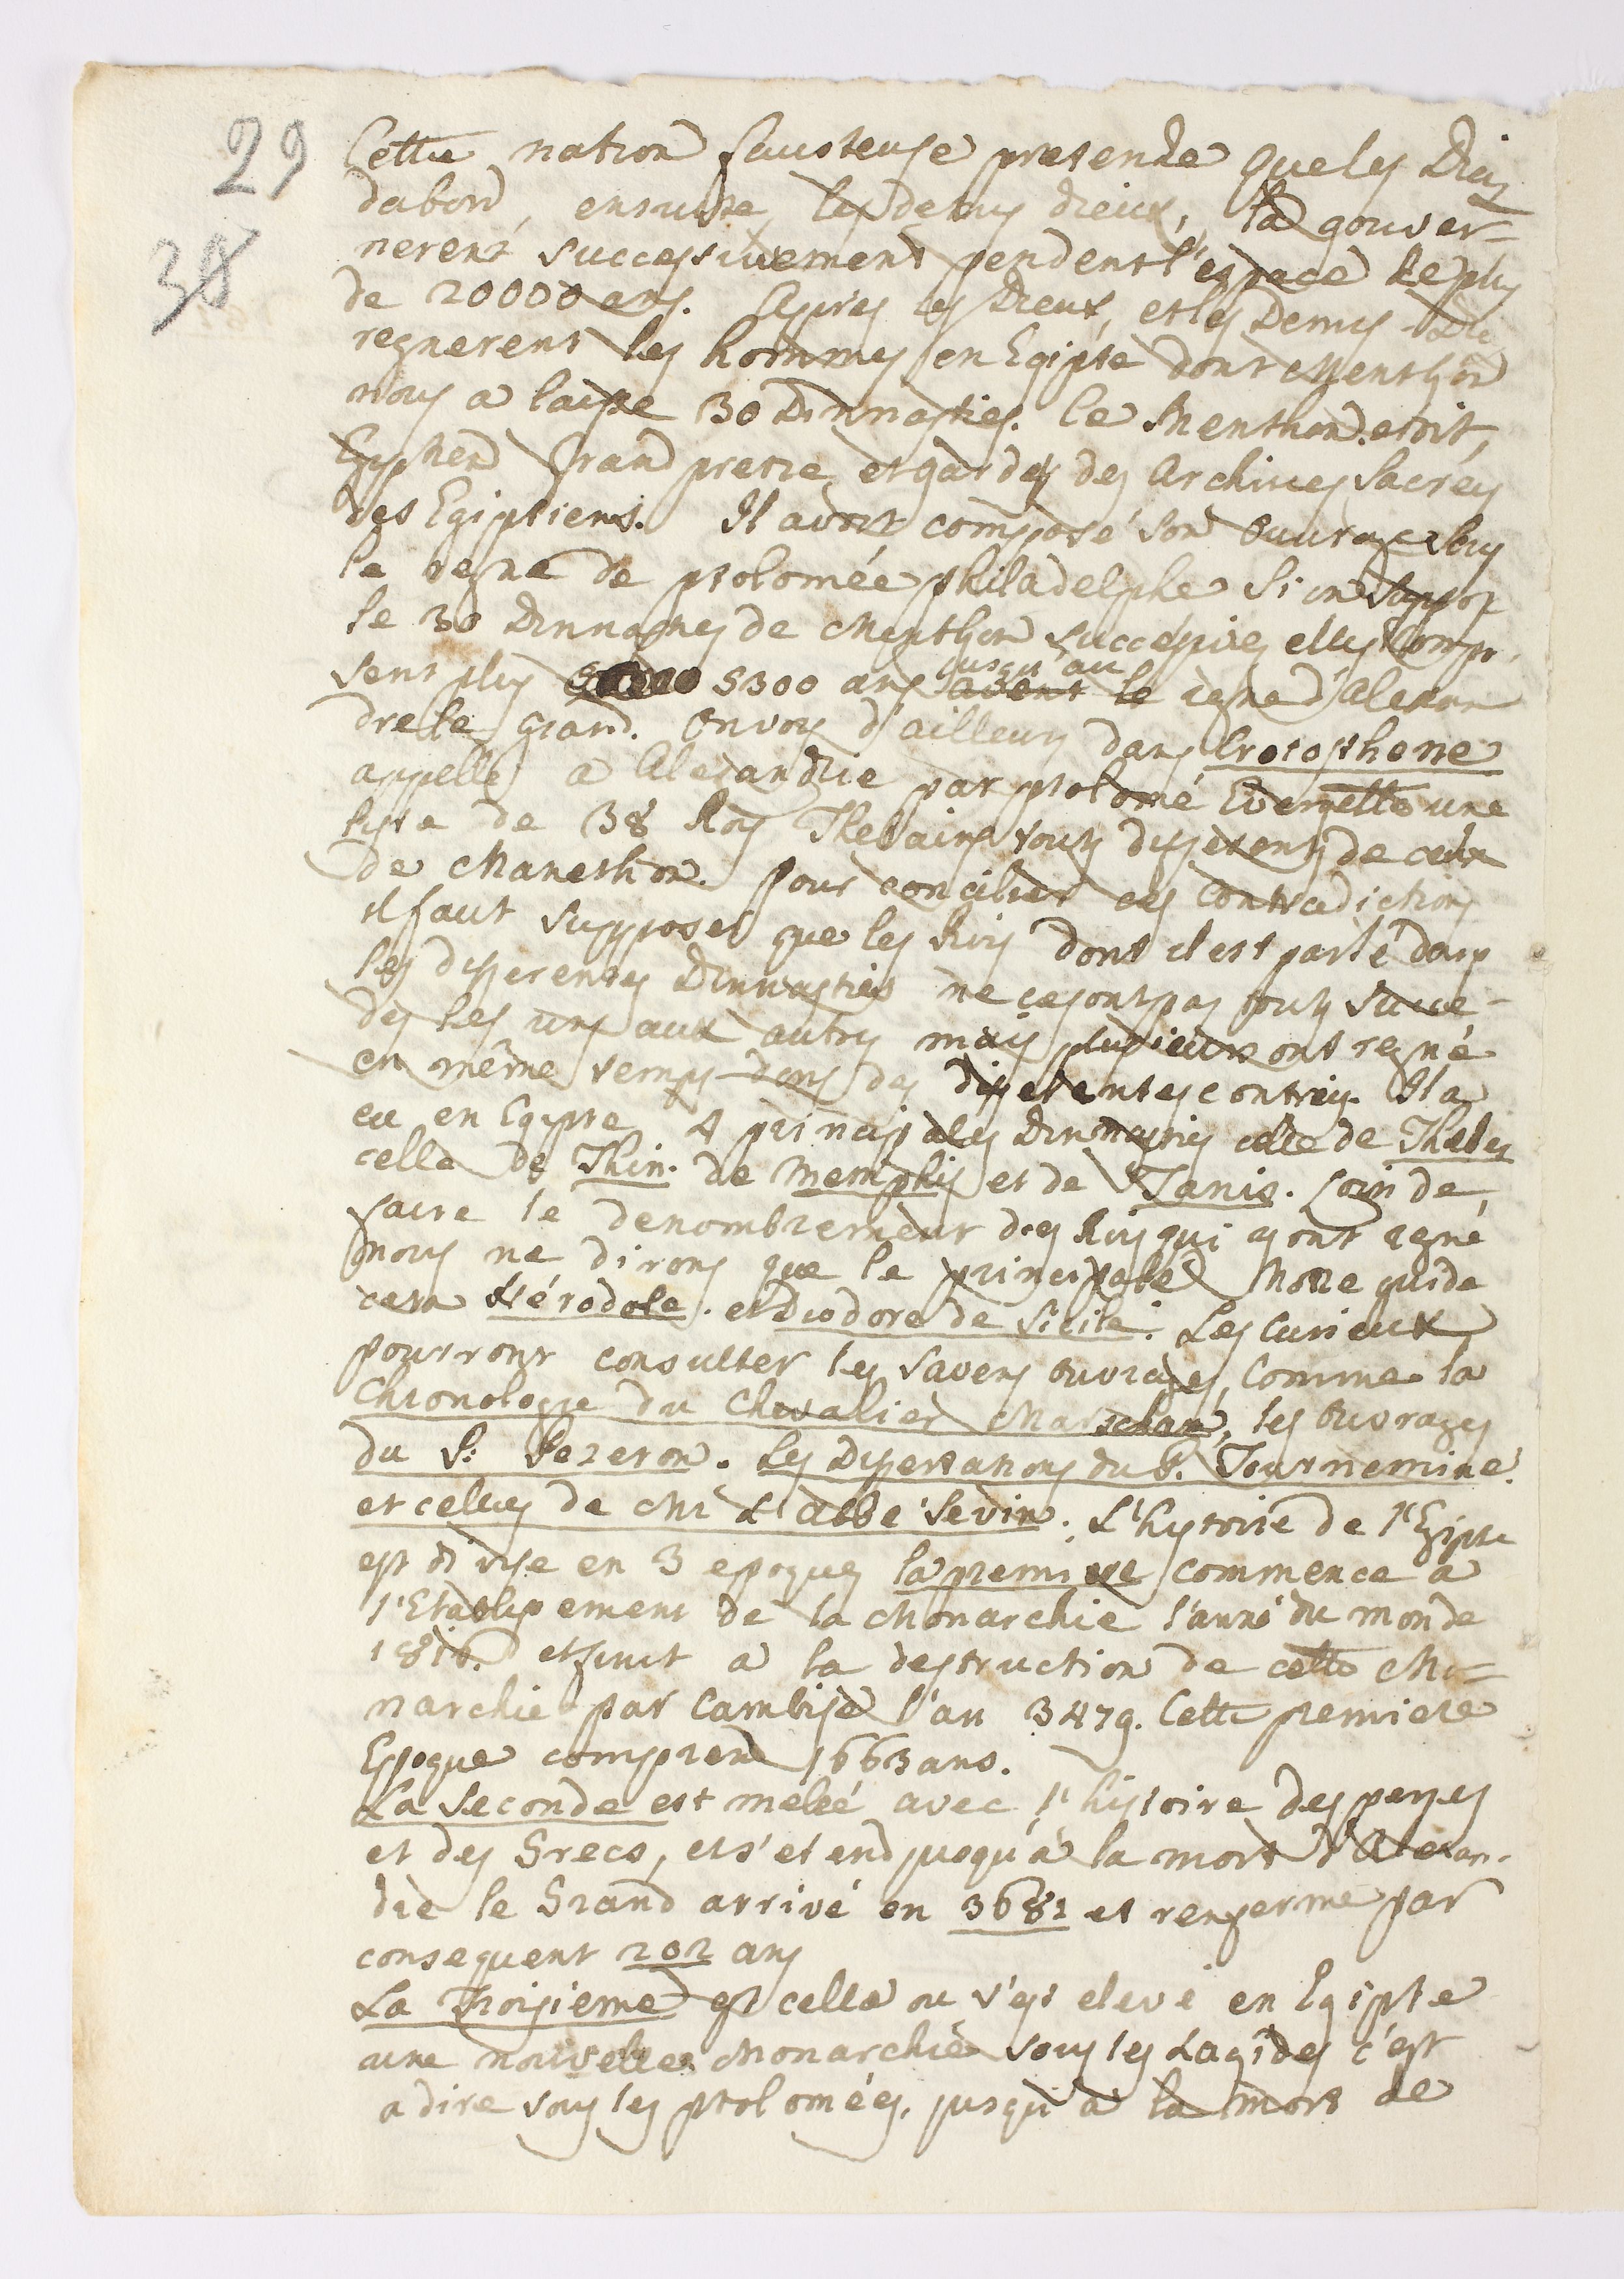 29
38
Cette nation fausteuse pretende que les Dieu
dabord, ensuiste les demys dieux, la gouver=
nerent successivement pendent l'espace de plus
de 20000 ans. Apres les Dieux, et les Demys Die
regnerent les hommes en Egipte dont Menthon
nous a laisse 30 Dinnasties. Ce Menthon etoit,
Egiptien Grand pretre et gardes des Archives Sacrées
des Egiptiens. Il avoit composé son Ouvrage sous
le regne de ptolomée philadelphe Si on suppos
le 30 Dinnasties de Menthon successives elles compr
sent plus 5300 ans avent jusqu'au le regne d'Alexan
dre le Grand. On voy d'ailleurs dans Erotosthene
appelle a Alexandrie par ptolomé Evergette une
liste de 38 Roy Thebains touts diferents de ceux
de Manethon. Pour concilier ces contradictions
il faut supposer que les Rois dont il est parlé dans
les differentes Dinnasties ne ce sont pas touts succe-
des les uns aux autres mais plusieurs ont regné
en même temps dans des diferentes contrées. Il a
eu en Egipte 4 principales Dinnasties celle de Thebes
celle de Thin. de Memphis et de Tanis. Loin de
faire le denombrement des Rois qui y ont regné
nous ne dirons que le principale Notre guide
cera Hérodote. et Diodore de Sicile. Les Curieux
pourront consulter les savens ouvrages, comme la
Chronologie du Chevalier Marscham, les Ouvrages
du P. Pezeron. Les Disertations du P. Tournemine.
et celles de Mr L'abbé Sevin. L'hystoire de l'Egipte
est divise en 3 epoques la premiere commence a
l'Etablisement de la Monarchie l'anné du monde
1816. et finit a la destruction de cette Mo=
narchie par Cambise l'an 3479. Cette premiere
Epoque comprend 1663 ans.
La Seconde est melée avec l'histoire des perses
et des Grecs, et s'etend jusqu'a la mort d'Alexan-
dre le Grand arrivé en 3681 et renferme par
consequent 202 ans
La Troisieme est celle ou s'est elevé en Egipte
une nouvelle Monarchie sous les Lagides c'est
a dire sous les ptolomées, jusqu'a la mort de